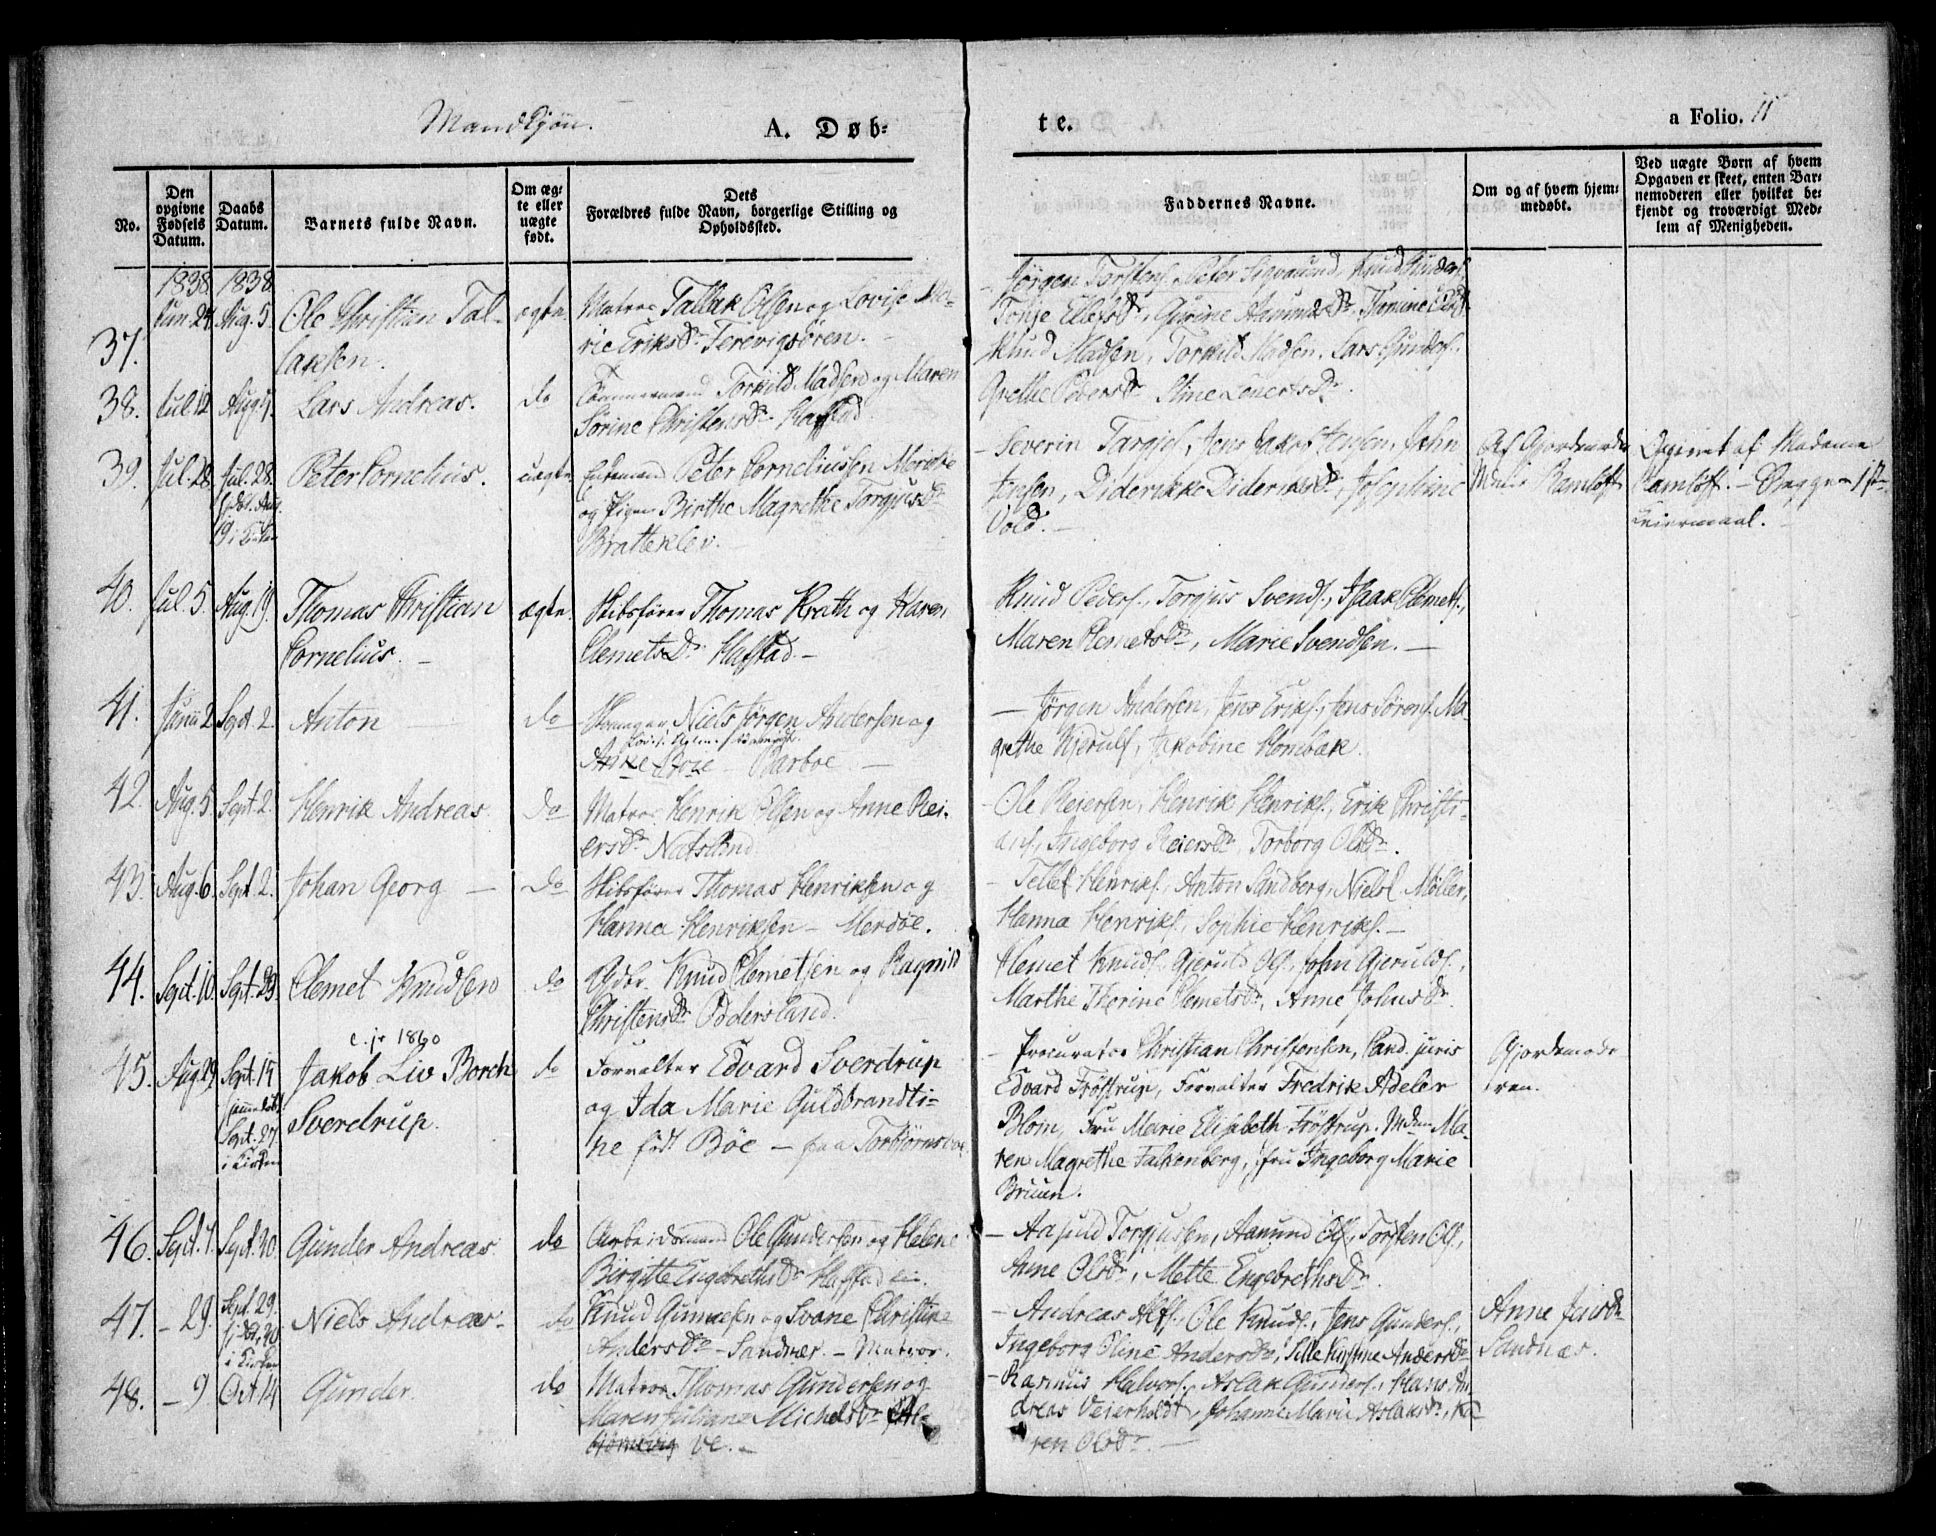 Mandkjøn.
A. Døb-
te.
a Folio. 11
No.
Den opgivne Fødsels Datum.
Daabs Datum.
Barnets fulde Navn.
Om ægte eller uægte født.
Dets Forældres fulde Navn, borgerlige Stilling og Opholdssted.
Faddernes Navne.
Om og af hvem hjemmedøbt.
Ved uægte Børn af hvem Opgaven er skeet, enten Barnemoderen eller hvilket bekjendt og troværdigt Medlem af Menigheden.
1838 1838
37. Jun. 24 Aug. 5. Ole Christian Tal-
laksen.
ægte
Matros Tallak Olsen og Lovise Ma-
rie Eriksdr Terevigsören.
Jörgen Torstens. Peter Sigvaund, Knud Gunders.
Tonje Ellefsdr, Gurine Aanunds dr, Thomine
38. Jul. 12 Aug. Lars Andreas. do
Tömmermand Torkild Madsen og Maren
Sörine Christensdr Hafstad
Knud Madsen, Torkild Madsen, Lars Gunders.
Grethe Pedersdr Stine Lenertsdr.
39. Jul. 28 Jul. 28. Peter Cornelius. uægte
19 i Kirken
Enkemand Peter Corneliussen Merdöe
og Pigen Birthe Magrethe Torgjusdr
Bratteklev.
Severin Targjes., Jens Jakob Jensen, John
Jensen, Diderikke Dideriksdr, Josephine
Vold.
Af Gjordemoder
Ramlöft
Opgivet af Madame
Ramlöft. - Begges 1ste
Leiermaal.
40. Jul. 5. Aug. 19. Thomas Christian
Cornelius.
ægte
Skibsförer Thomas Krath og Karen
Clemetsdr Hafstad
Knud Peders., Torgjus Svends., Isaak Clemets.,
Maren Clemetsdr, Marie Svendsen.
41. Junii 2 Sept. 2. Anton do
Niels Jörgen Andersen og
Anne Boie - Barboe
Jörgen Andersen, Jens Eriks., Jens Sörens. Ma-
grethe Hjerulf, Jakobine Honebak.
42. Aug. 5 Sept. 2. Henrik Andreas do
Matros Henrik Olsen og Anne Rei-
ersdr Natsland
Ole Reiersen, Henrik Henriks., Erik Christi-
ans., Ingeborg Reiersdr, Torborg Olsdr.
43. Aug. 6. Sept. 2. Johan Georg do
Skibsförer Thomas Henriksen og
Hanna Henriksen - Merdöe.
Tellef Henriks., Anton Sandberg, Niels Möller,
Hanna Henriks., Sophie Henriks.
44. Sept. 10. Sept. 23. Clemet Knudsen do
Knud Clemetsen og Ragnild
Christensdr Oddersland.
Clemet Knuds., Gjeruld Ols., John Gjerulds.,
Marthe Therine Clemetsdr, Anne Johnsdr
c. jr 1860
45. Aug. 29. Sept. 15 Jakob Liv Borch
Sverdrup.
Sept. 27
i Kirken
do
Forvalter Edvard Sverdrup
og Ida Marie Guldbrandti-
ne född Böe - paa Torbjörnsboe.
Procurator Christian Christensen, Cand. juris
Edvard Tröstrup, Forvalter Fredrik Adeler
Blom, Fru Marie Elisabeth Tröstrup, Mdm Ma-
ren Magrethe Falkenberg, Fru Ingeborg Marie
Bruun.
Gjordemode
ren.
46. Sept. 1. Sept. 30. Gunder Andreas do
Arbeidsmand Ole Gundersen og Helene
Birgitte Engebrethsdr Hafstad
Aasuld Torgjussen, Aanund Ols., Torsten Ols.,
Anne Olsdr, Mette Engebrethsdr
47. - 29. Sept. 29. Niels Andreas do
i Kirken
Knud Gunnesen og Svane Christine
Andersdr - Sandnæs. - Matros.
Andreas Alfs., Ole Knuds., Jens Gunders.,
Ingeborg Oline Andersdr, Sille Kirstine Andersdr
Anne
Sandnæs.
48. - 9 Oct. 14 Gunder. do
Matros Thomas Gundersen og
Maren Juliane Michelsdr
ve.
Rasmus Halvors., Aslak Gunders., Hans An-
dreas Veierholdt, Johanne Marie Aslaksdr, Ka-
ren Olsdr.